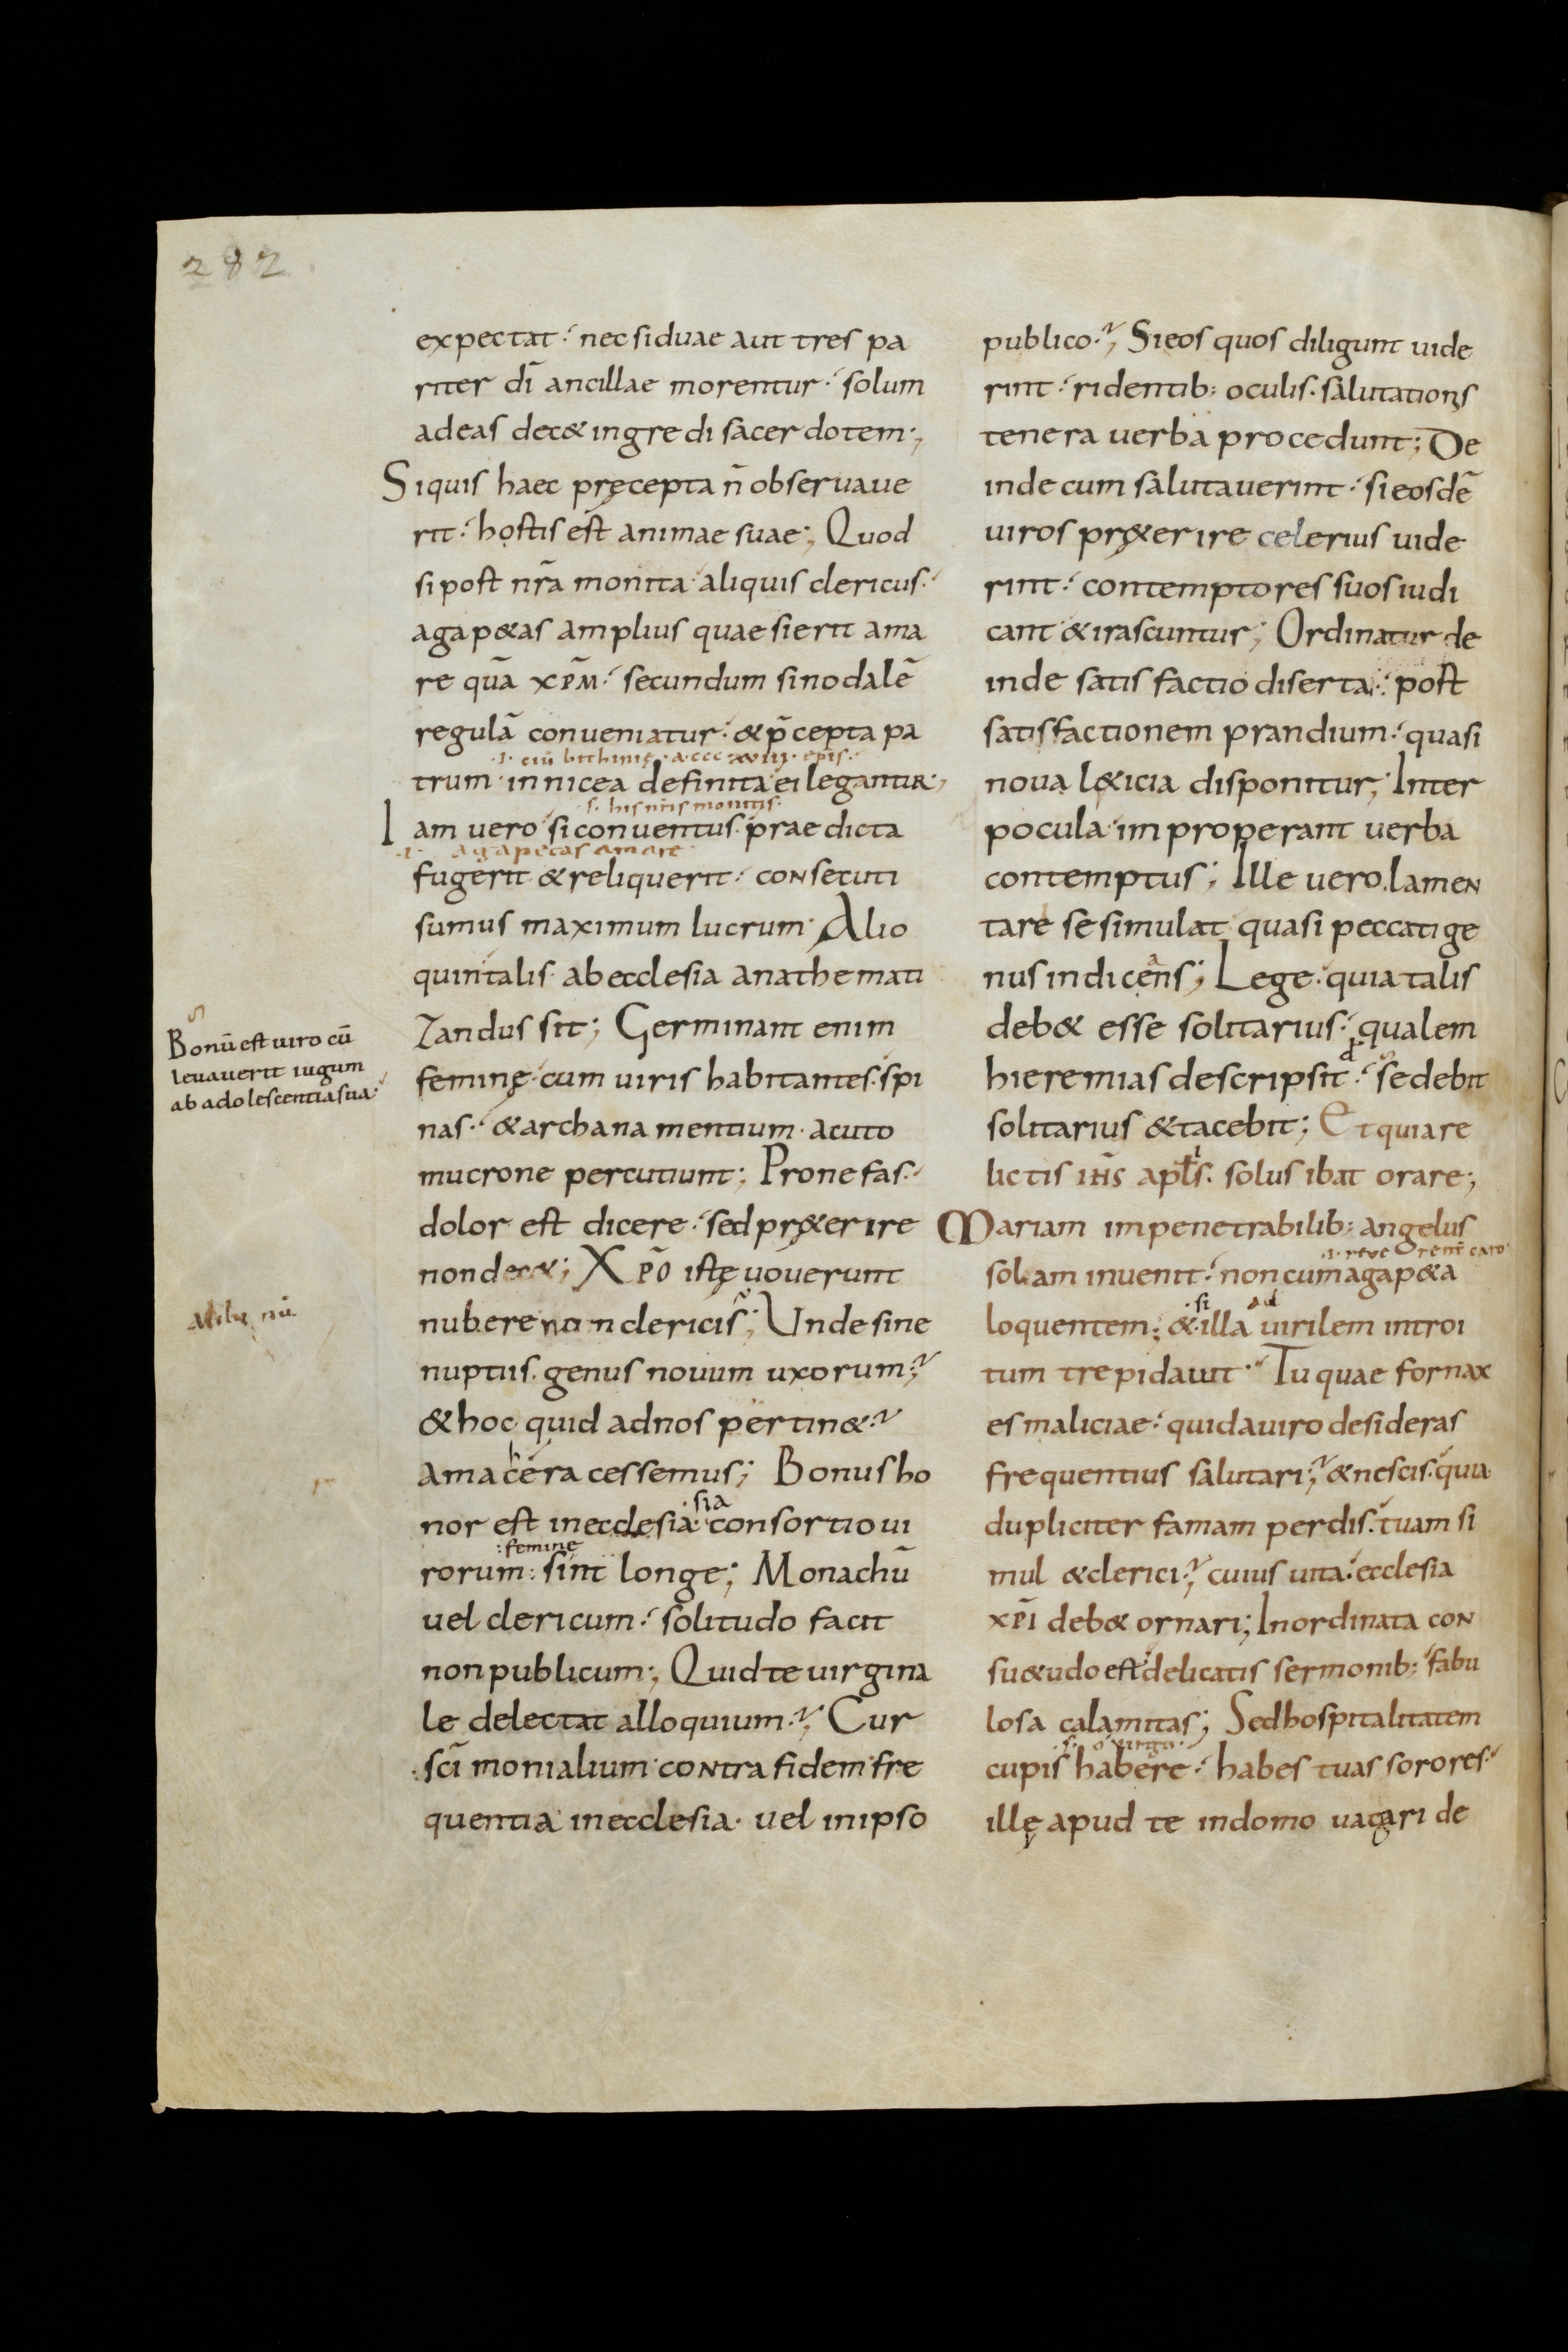 282
expectat nec si duae aut tres pa
riter dī ancillae morentur solum
ad eas dec& ingredi sacerdotem;
Si quis haec pręcepta n̄ obseruaue
rit hostis est animae suae; Quod
si post nr̄a monita aliquis clericus
agap&as amplius quaesierit ama
re quā xp̄m secundum sinodalē
regulā conueniatur & p̄cepta pa
.i. ciū bithinię .a.ccc.xviii. epīs.
trum in nicea definita ei legantur;
s. his nr̄is monitis.
Iam uero si conuentus praedicta
.i. agapetas amare
fugerit & reliquerit consecuti
sumus maximum lucrum Alio
quin talis ab ecclesia anathemati
zandus sit; Germinant enim
feminę cum uiris habitantes spi
nas & archana mentium acuto
mucrone percutiunt; Pro nefas
dolor est dicere sed pr&erire
non dec&; Xp̄o istę uouerunt
nubere non clericis; Unde sine
nuptiis genus nouum uxorum?
& hoc quid ad nos pertin&?
Amacera cessemus; Bonus ho
sia
nor est in ecclesia consortio ui
femine
rorum sint longe; Monachū
uel clericum solitudo facit
non publicum; Quid te uirgina
le delectat alloquium? Cur
sc̄i monialium contra fidem fre
quentia in ecclesia uel in ipso
Bonū est uiro cū
leuauerit iugum
ab adolescentia sua
publico? Si eos quos diligunt uide
rint ridentib: oculis salutations
tenera uerba procedunt; De
inde cum salutauerint si eosdē
uiros pr&erire celerius uide
rint contemptores suos iudi
cant & irascuntur; Ordinatur de
inde satisfactio diserta post
satisfactionem prandium quasi
noua l&icia disponitur; Inter
pocula improperant uerba
contemptus; Ille uero lamen
tare se simulat quasi peccati ge
nus indicens; Lege quia talis
deb& esse solitarius qualem
hieremias descripsit sedebit
solitarius & tacebit; Et quia re
lictis ih̄s aptl̄s solus ibat orare;
Mariam impenetrabilib: angelus
solam inuenit non cum agap&a
si ad
loquentem; & illa uirilem introi
tum trepidauit Tu quae fornax
es maliciae quid a uiro desideras
frequentius salutari? & nescis quia
dupliciter famam perdis tuam si
mul & clerici? cuius uita ecclesia
xp̄i deb& ornari; Inordinata con
su&udo est delicatis sermonib: fabu
losa calamitas; Sed hospitalitatem
s. o uirgo
cupis habere habes tuas sorores
illę apud te in domo uagari de